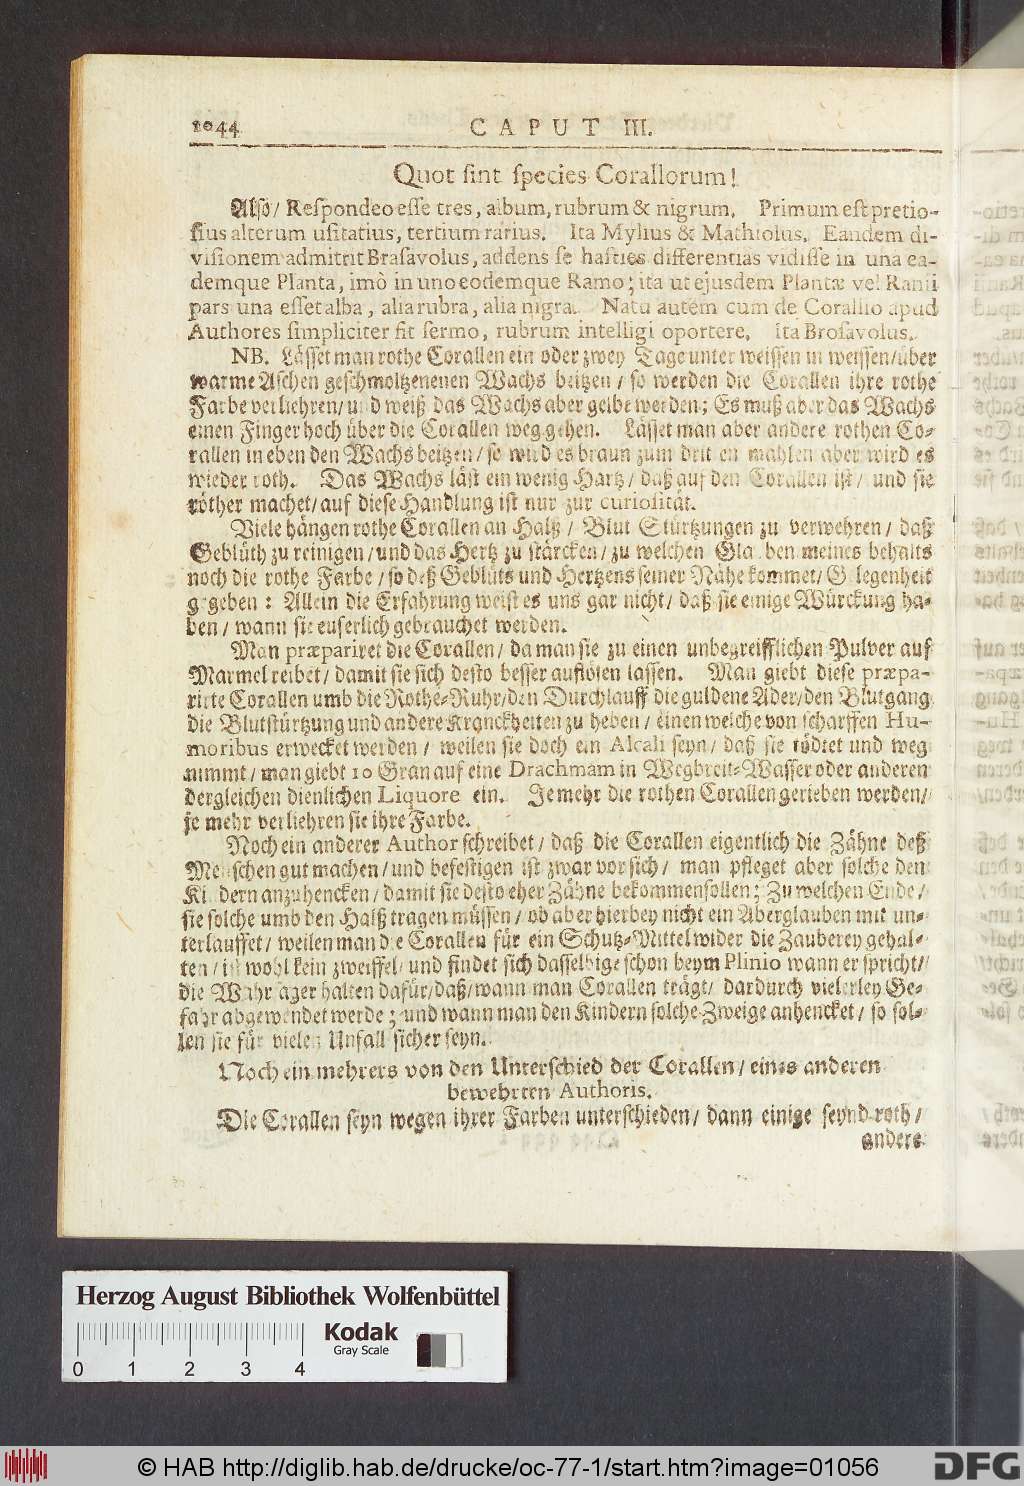 1044 CAPUT III.
Quot sint species Corallorum!
Also/ Respondeo esse tres, album, rubrum & nigrum. Primum est pretio-
sius alterum usitatius, tertium rarius. Ita Mylius & Mathiolus. Eandem di-
visionem admittit Brasavolus, addens se hasties differentias vidisse in una ea-
demque Planta, imò in uno eodemque Ramo; ita ut ejusdem Plantæ vel Rami
pars una esset alba, alia rubra, alia nigra. Nam autem cum de Corallio apud
Authores simpliciter fit sermo, rubrum intelligi oportere, Ita Brosavolus.
NB. Lässet man rothe Corallen ein oder zwey Tage unter weissen in weissen/über
warme Aschen geschmoltzenenen Wachs beitzen/ so werden die Corallen ihre rothe
Farbe verliehren/und weiß das Wachs aber gelbe werden; Es muß aber das Wachs
einen Finger hoch über die Corallen weg gehen. Lässet man aber andere rothen Co-
rallen in eben den Wachs beitzen/ so wird es braun zum dritten mahlen aber wird es
wieder roth. Das Wachs läst ein wenig Hartz/ daß auf den Corallen ist/ und sie
röther machet/auf diese Handlung ist nur zur curiosität.
Viele hängen rothe Corallen an Halß/ Blut Stürtzungen zu verwehren/ daß
Geblüth zu reinigen/und das Hertz zu stärcken/zu welchen Glauben meines behalts
noch die rothe Farbe/so deß Geblüts und Hertzens seiner Nähe kommet/Gelegenheit
gegeben: Allein die Erfahrung weist es uns gar nicht/ daß sie einige Würckung ha-
ben/ wann sie euserlich gebrauchet werden.
Man præpariret die Corallen/da man sie zu einen unbegreifflichen Pulver auf
Marmel reibet/damit sie sich desto besser auflösen lassen. Man giebt diese præpa-
rirte Corallen umb die Rothe-Ruhr/den Durchlauff die guldene Ader/den Blutgang
die Blutstürtzung und andere Kranckheiten zu heben/ einen welche von scharffen Hu-
moribus erwecket werden/ weilen sie doch ein Alcali seyn/ daß sie tödtet und weg
nimmt/man giebt 10 Gran auf eine Drachmam in Wegbreit-Wasser oder anderen
dergleichen dienlichen Liquore ein. Je mehr die rothen Corallen gerieben werden/
je mehr verliehren sie ihre Farbe.
Noch ein anderer Author schreibet/ daß die Corallen eigentlich die Zähne deß
Menschen gut machen/und befestigen ist zwar vor sich/ man pfleget aber solche den
Kindern anzuhencken/damit sie desto eher Zähne bekommen sollen; Zu welchen Ende/
sie solche umb den Halß tragen müssen/ ob aber hierbey nicht ein Aberglauben mit un-
terlauffet/ weilen man die Corallen für ein Schutz-Mittel wider die Zauberey gehal-
ten/ist wohl kein zweiffel/und findet sich dasselbige schon beym Plinio wann er spricht/
die Wahrsager halten dafür/daß/wann man Corallen trägt/ dardurch vielerley Ge-
fahr abgewendet werde; und wann man den Kindern solche Zweige anhencket/ so sol-
len sie für vielen Unfall sicher seyn.
Noch ein mehrers von den Unterschied der Corallen/ eines anderen
bewehrten Authoris.
Die Corallen seyn wegen ihrer Farben unterschieden/ dann einige seynd roth/
andere
Herzog August Bibliothek Wolfenbüttel
Kodak
Gray Scale
0 1 2 3 4
© HAB http://diglib.hab.de/drucke/oc-77-1/start.htm?image=01056
DFG